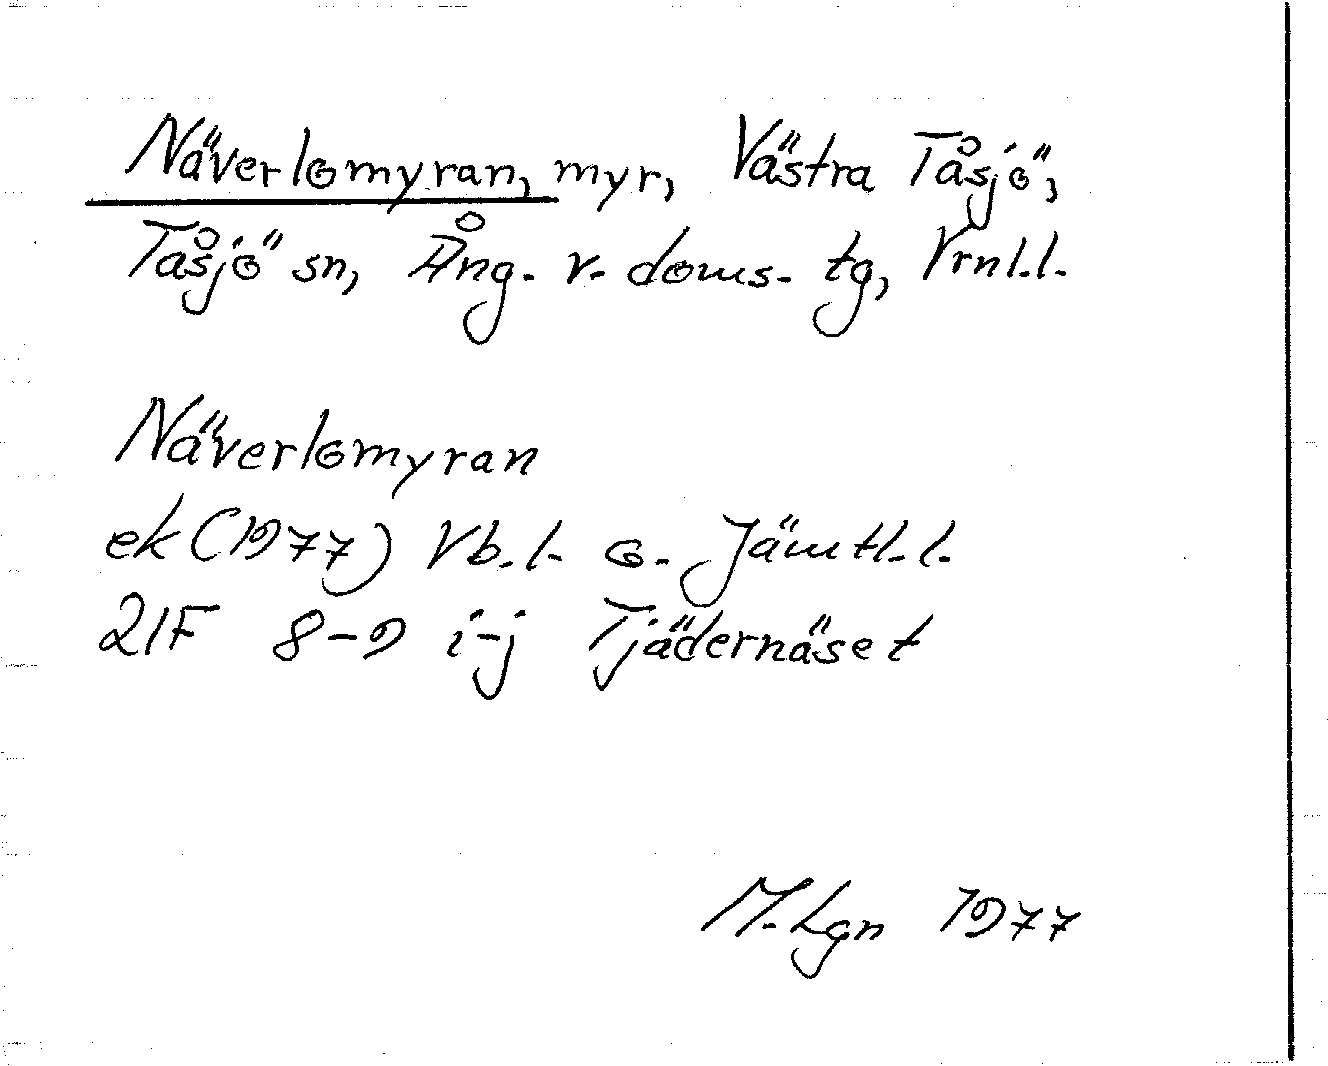 Näverlomyran, myr, Västra Tåsjö,
Tåsjö sn, Ång. v. doms. tg, Vrnl.l.
Näverlomyran
ek (1977) Vb.l. o. Jämtl.l.
21F 8-9 i-j Tjädernäset
M.Lgn 1977